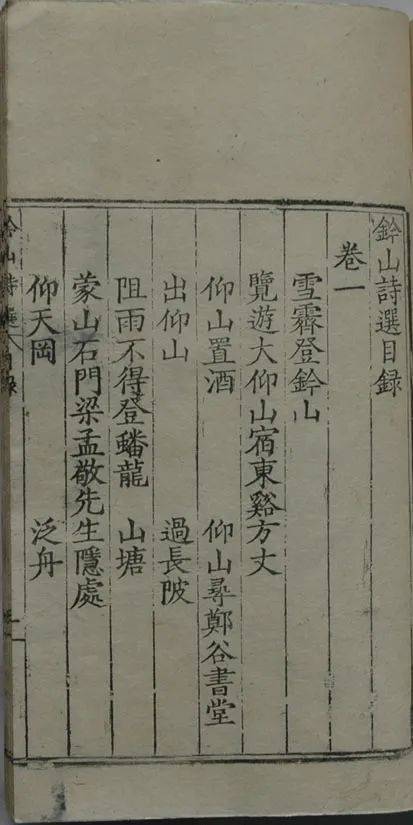 鈐山詩選目録
卷一
雪霽登鈐山
覽遊大仰山宿東谿方丈
仰山置酒　仰山尋鄭谷書堂
出仰山　過長陂
阻雨不得登蟠龍　山塘
蒙山石門梁孟敬先生隱處
仰天岡　泛舟
鈐山詩選目録
一